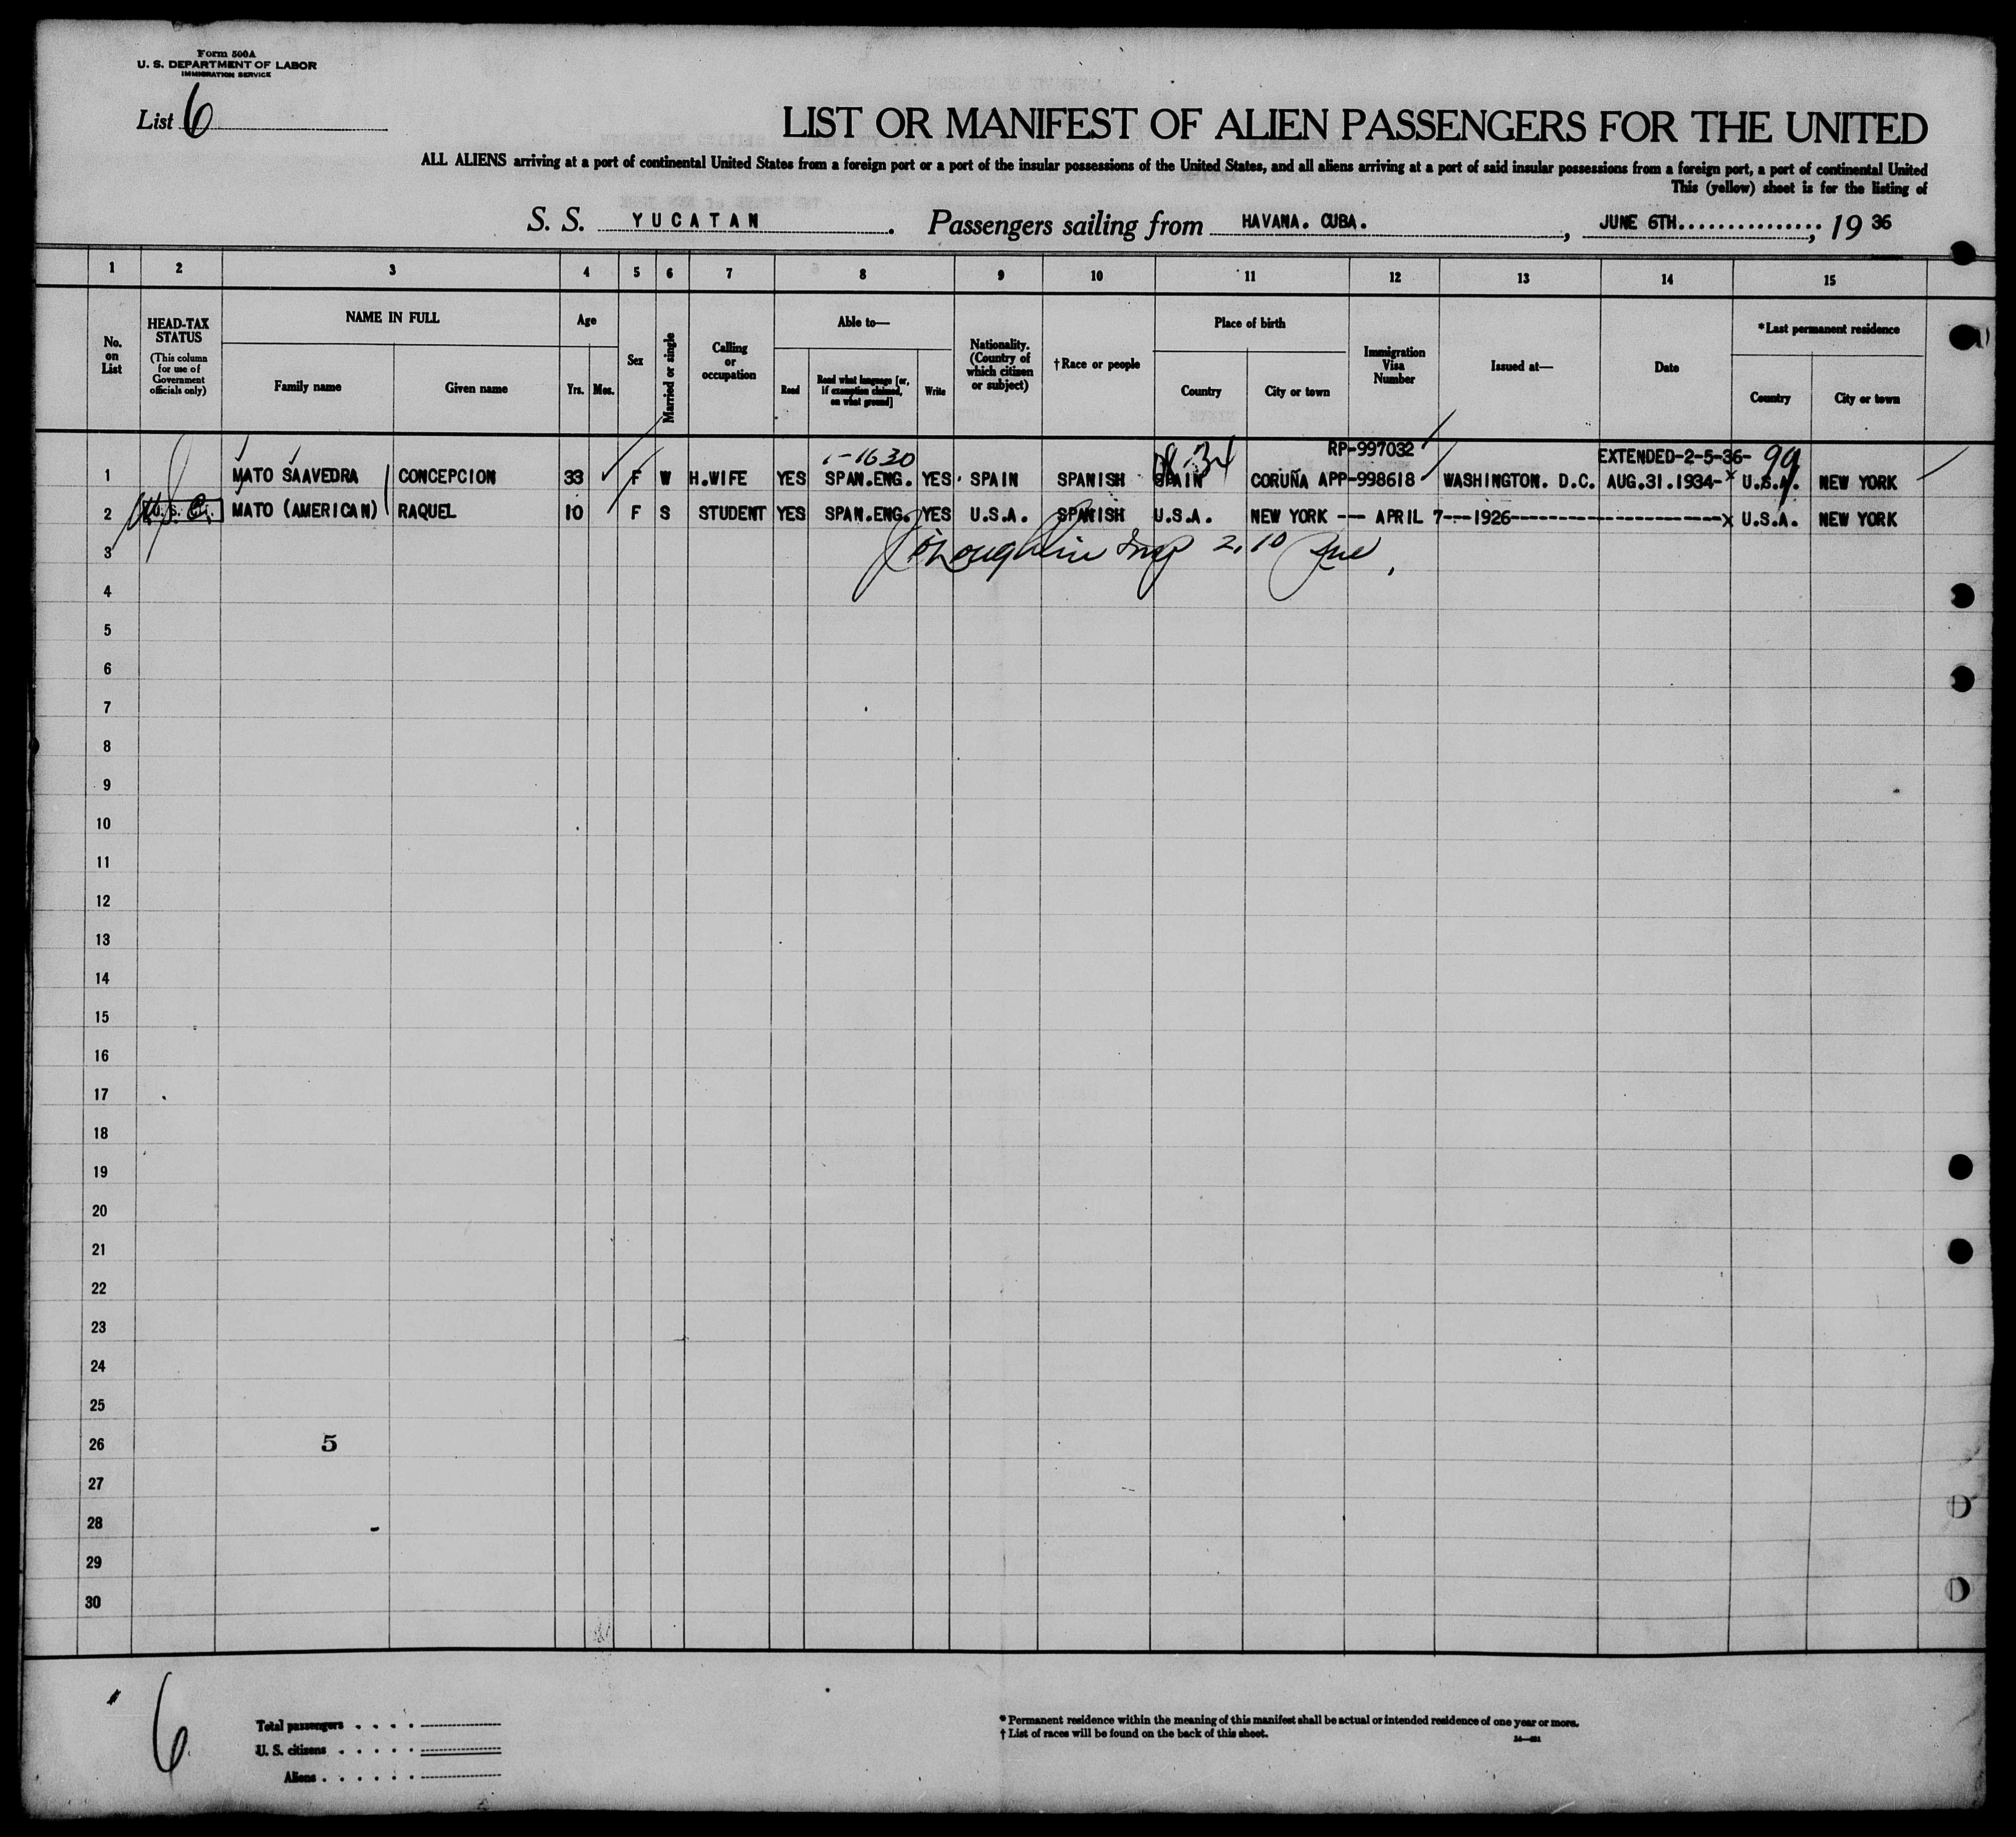 Form 500A
U. S. DEPARTMENT OF LABOR
IMMIGRATION SERVICE
List 6
LIST OR MANIFEST OF ALIEN PASSENGERS FOR THE UNITED
ALL ALIENS arriving at a port of continental United States from a foreign port or a port of the insular possessions of the United States, and all aliens arriving at a port of said insular possessions from a foreign port, a port of continental United
This (yellow) sheet is for the listing of
S. S. YUCATAN. Passengers sailing from HAVANA. CUBA., JUNE 6TH..............., 19 36
1 2 3 4 5 6 7 8 9 10 11 12 13 14 15
No. on List
HEAD-TAX STATUS
(This column for use of Government officials only)
NAME IN FULL
Family name
Given name
Age
Yrs.
Mos.
Sex
Married or single
Calling or occupation
Able to—
Read
Read what language [or, if exemption claimed, on what ground]
Write
Nationality. (Country of which citizen or subject)
†Race or people
Place of birth
Country
City or town
Immigration Visa Number
Issued at—
Date
*Last permanent residence
Country
City or town
1-1630
RP-997032
EXTENDED-2-5-36- 99
1 MATO SAAVEDRA CONCEPCION 33 F W H.WIFE YES SPAN.ENG. YES SPAIN SPANISH SPAIN CORUÑA APP-998618 WASHINGTON. D.C. AUG.31.1934-x U.S.A. NEW YORK
2 U.S. MATO (AMERICAN) RAQUEL 10 F S STUDENT YES SPAN.ENG. YES U.S.A. SPANISH U.S.A. NEW YORK --- APRIL 7---1926----------------------x U.S.A. NEW YORK
3
4
5
6
7
8
9
10
11
12
13
14
15
16
17
18
19
20
21
22
23
24
25
26 5
27
28
29
30
6
Total passengers . . . .
U. S. citizens . . . . .
Aliens . . . . . .
* Permanent residence within the meaning of this manifest shall be actual or intended residence of one year or more.
† List of races will be found on the back of this sheet.